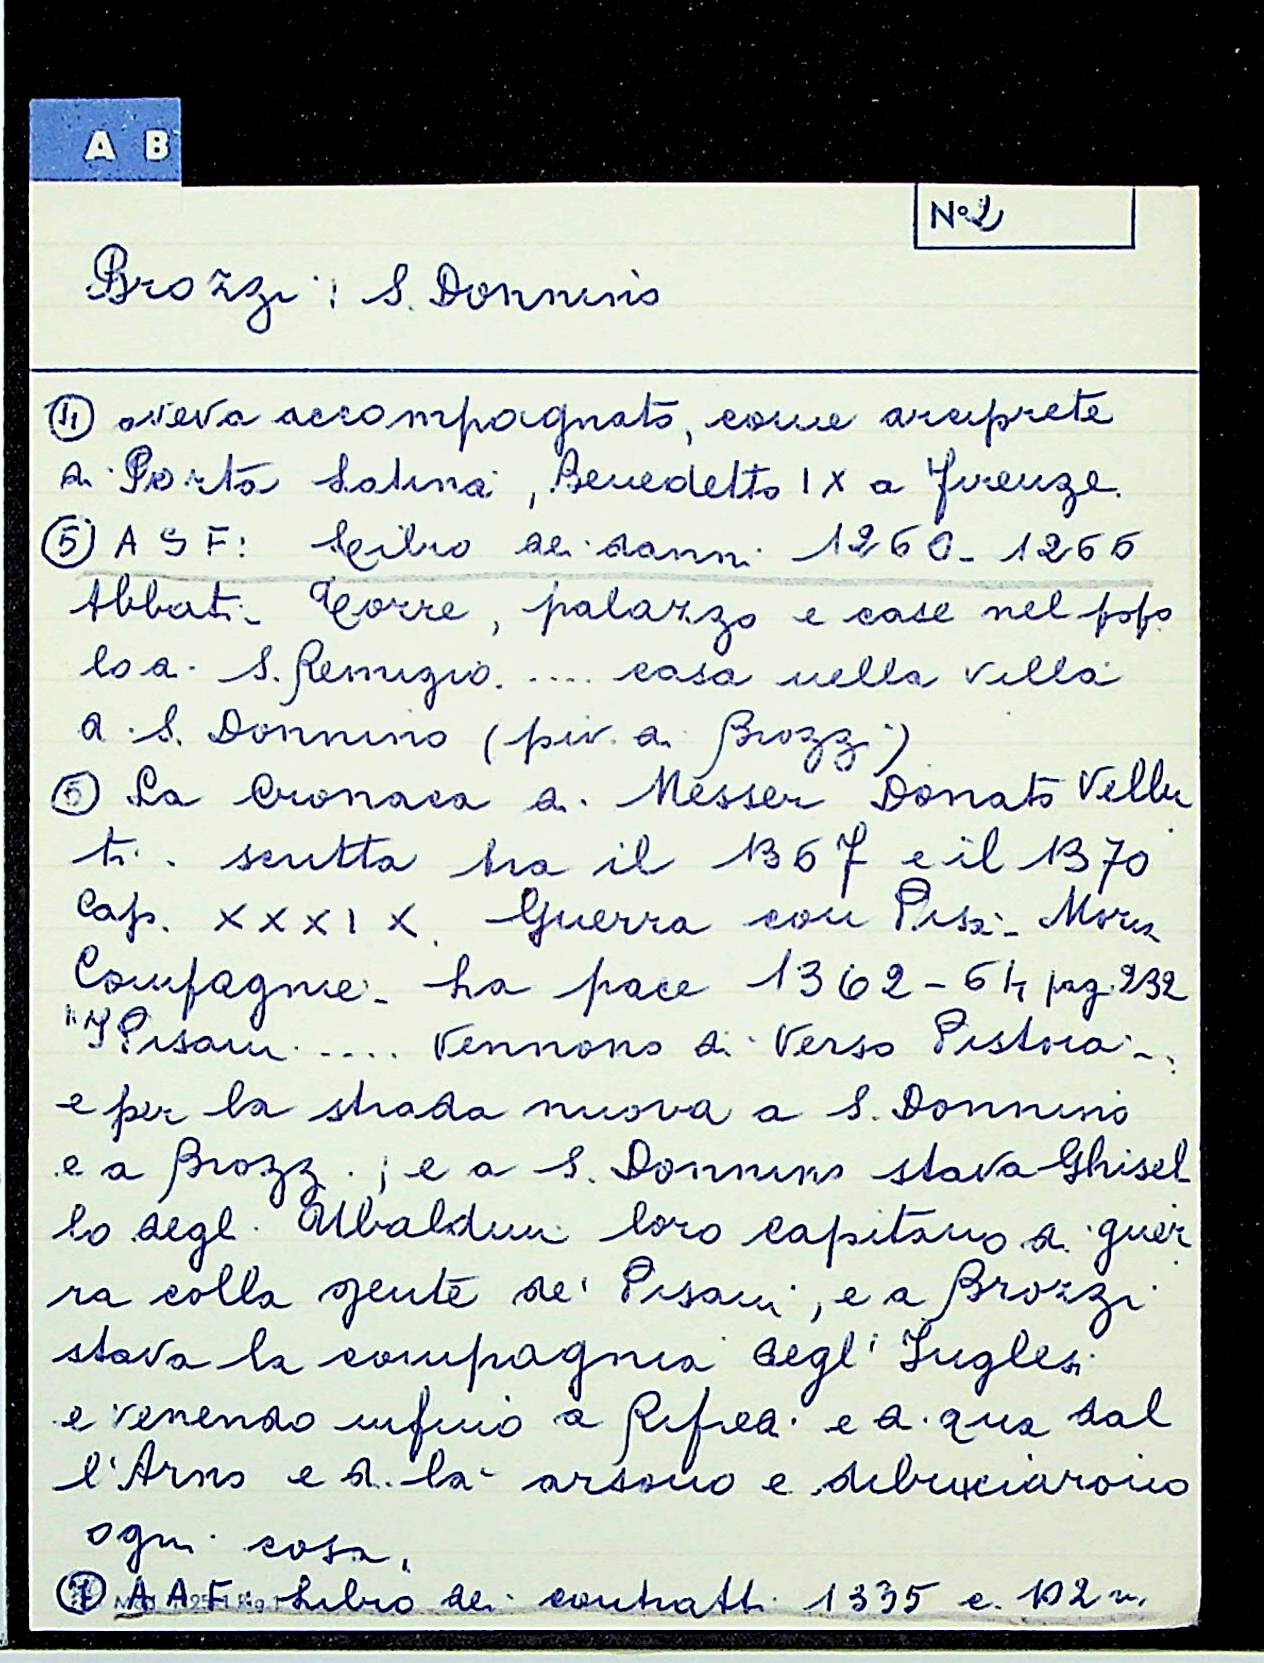 A B
N° 2
Brozzi: S. Donnino
④ aveva accompagnato, come arciprete
di Porta Latina, Benedetto IX a Firenze.
⑤ A S F: Libro dei danni 1260-1266
Abbati- Torre, palazzo e case nel popo
lo di S. Remigio. .... casa nella villa
di S. Donnino (piv. di Brozzi)
⑥ La Cronaca di Messer Donato Vellu
ti. scritta tra il 1367 e il 1370
Cap. XXXIX. Guerra con Pisa-
Compagnie- ha pace 1362-64 pag. 232
"I Pisani .... vennono di verso Pistoia-
e per la strada nuova a S. Donnino
e a Brozzi; e a S. Donnino stava Ghisel
lo degli Ubaldini loro capitano di guer
ra colla gente de' Pisani, e a Brozzi
stava la compagnia degl' Inglesi
e venendo infino a Rifredi e di qua dal
l'Arno e di là arsono e dibruciarono
ogni cosa.
⑦ A A F: Libro dei contratti 1335 c. 102